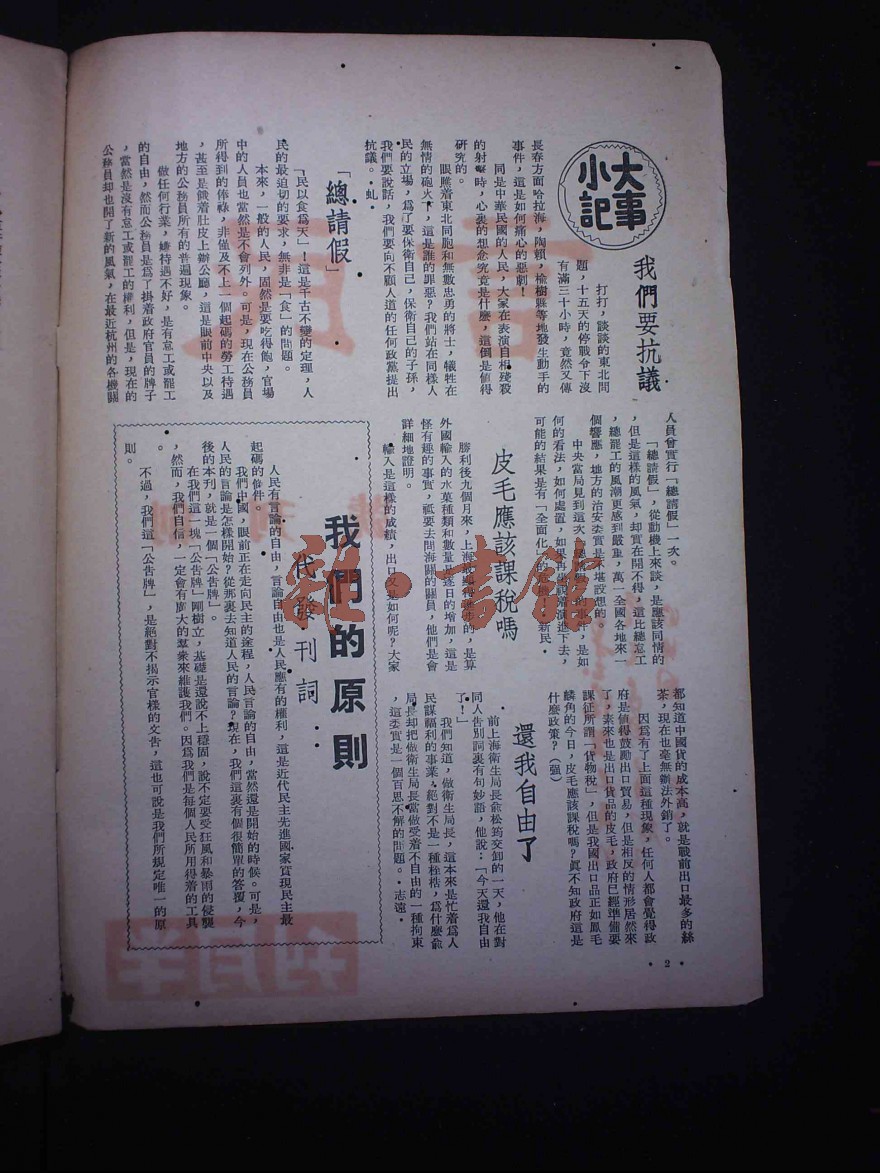 大事小記
我們要抗議
打打,談談的東北問
題,十五天的停戰令下沒
有滿三十小時,竟然又傳
長春方面哈拉海,陶賴,榆樹縣等地發生動手的
事件,這是如何痛心的悲劇!
同是中華民國的人民,大家在表演自相殘殺
的射擊時,心裏的想念究竟是什麼,這倒是値得
研究的。
眼瞧着東北同胞和無數忠勇的將士,犧牲在
無情的砲火下,這是誰的罪惡?我們站在同樣人
民的立場,爲了要保衛自己,保衛自己的子孫,
我們要說話,我們要向不顧人道的任何政黨提出
抗議。•虬•
「總請假」
「民以食爲天」!這是千古不變的定理,人
民的最迫切的要求,無非是「食」的問題。
本來,一般的人民,固然是要吃得飽,官場
中的人員也當然是不會列外。可是,現在公務員
所得到的俸祿,非僅及不上一個起碼的勞工待遇
,甚至是餓着肚皮上辦公廳,這是眼前中央以及
地方的公務員所有的普遍現象。
做任何行業,嫌待遇不好,是有怠工或罷工
的自由,然而公務員是爲了掛着政府官員的牌子
,當然是沒有怠工或罷工的權利,但是,現在的
公務員却也開了新的風氣,在最近杭州的各機關
人員會實行「總請假」一次。
「總請假」,從動機上來談,是應該同情的
,但是這樣的風氣,却實在開不得,這比總怠工
,總罷工的風潮更感到嚴重,萬一全國各地來一
個響應,地方的治安委實是不堪設想的。
中央當局見到這次「總請假」的事件,是如
何的看法,如何處置,如果再坐視着演進下去,
可能的結果是有「全面化」的危機•新民•
皮毛應該課稅嗎
勝利後九個月來,上海最顯得進步的,是算
外國輸入的水菓種類和數量是逐日的增加,這是
怪有趣的事實,祇要去問海關的關員,他們是會
詳細地證明。
輸入是這樣的成績,出口又是如何呢?大家
都知道中國貨的成本高,就是戰前出口最多的絲
茶,現在也毫無辦法外銷了。
因爲有了上面這種現象,任何人都會覺得政
府是値得鼓勵出口貿易,但是相反的情形居然來
了,素來也是出口貨品的皮毛,政府已經準備要
課征所謂「貨物稅」,但是我國出口品正如鳳毛
麟角的今日,皮毛應該課稅嗎?眞不知政府這是
什麼政策?(强)
還我自由了
前上海衛生局長兪松筠交卸的一天,他在對
同人告別詞裏有句妙語,他說:「今天還我自由
了!」
我們知道,做衛生局長,這本來是忙着爲人
民謀福利的事業,絕對不是一種桎梏,爲什麼兪
局長却把做衛生局長當做受着不自由的一種拘束
,這委實是一個百思不解的問題。•志遠•
我們的原則
代發刊詞:
人民有言論的自由,言論自由也是人民應有的權利,這是近代民主先進國家實現民主最
起碼的條件。
我們中國,眼前正在走向民主的途程,人民言論的自由,當然還是開始的時候。可是,
人民的言論是怎樣開始?從那裏去知道人民的言論?現在,我們這裏有個很簡單的答覆,今
後的本刊,就是一個「公告牌」。
在我們這一塊「公告牌」剛樹立,基礎是還說不上穩固,說不定要受狂風和暴雨的侵襲
,然而,我們自信,一定會有廣大的羣衆來維護我們。因爲我們是每個人民所用得着的工具
。
不過,我們這「公告牌」,是絕對不揭示官樣的文告,這也可說是我們所規定唯一的原
則。
•2•
半月刊